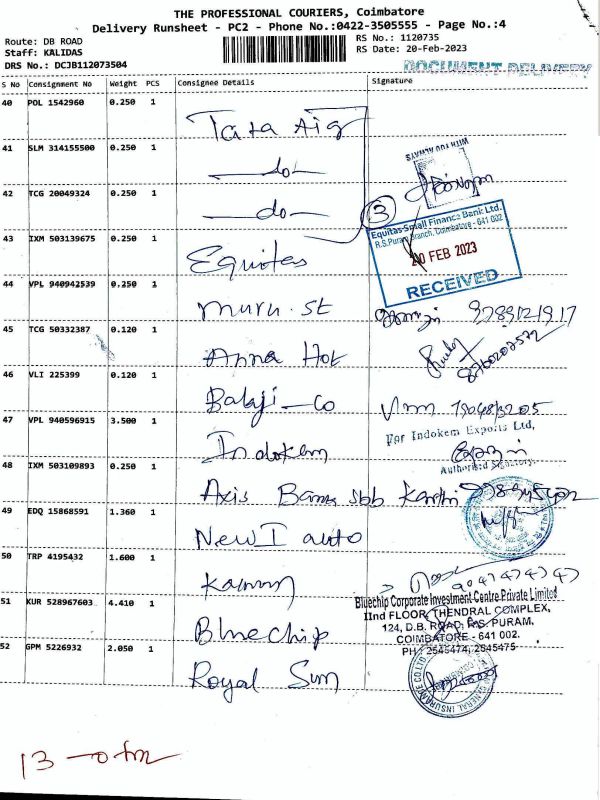 THE PROFESSIONAL COURIERS, Coimbatore
Delivery Runsheet - PC2 - Phone No.:0422-3505555 - Page No.:4
Route: DB ROAD
Staff: KALIDAS
DRS No.: DCJB112073504
RS No.: 1120735
RS Date: 20-Feb-2023
DOCUMENT DELIVERY
S No Consignment No Weight PCS Consignee Details Signature
40 POL 1542960 0.250 1 Tata Aig
41 SLM 314155500 0.250 1 —do—
WITH YOU ALWAYS
42 TCG 20049324 0.250 1 —do—
3
43 IXM 503139675 0.250 1 Equitas
Equitas Small Finance Bank Ltd.
R.S.Puram Branch, Coimbatore - 641 002
20 FEB 2023
RECEIVED
44 VPL 940942539 0.250 1 Muru. St
45 TCG 50332387 0.120 1 Anna Hot
46 VLI 225399 0.120 1 Balaji — Co
47 VPL 940596915 3.500 1 Indokem
For Indokem Exports Ltd,
Authorised Signatory
48 IXM 503109893 0.250 1 Axis Bank sbb
49 EDQ 15868591 1.360 1 New I auto
50 TRP 4195432 1.600 1
51 KUR 528967603 4.410 1 Bluechip
Bluechip Corporate Investment Centre Private Limited
IInd FLOOR, THENDRAL COMPLEX,
124, D.B. ROAD, R.S. PURAM,
COIMBATORE - 641 002.
PH : 2545474, 2545475
52 GPM 5226932 2.050 1 Royal Sun
13